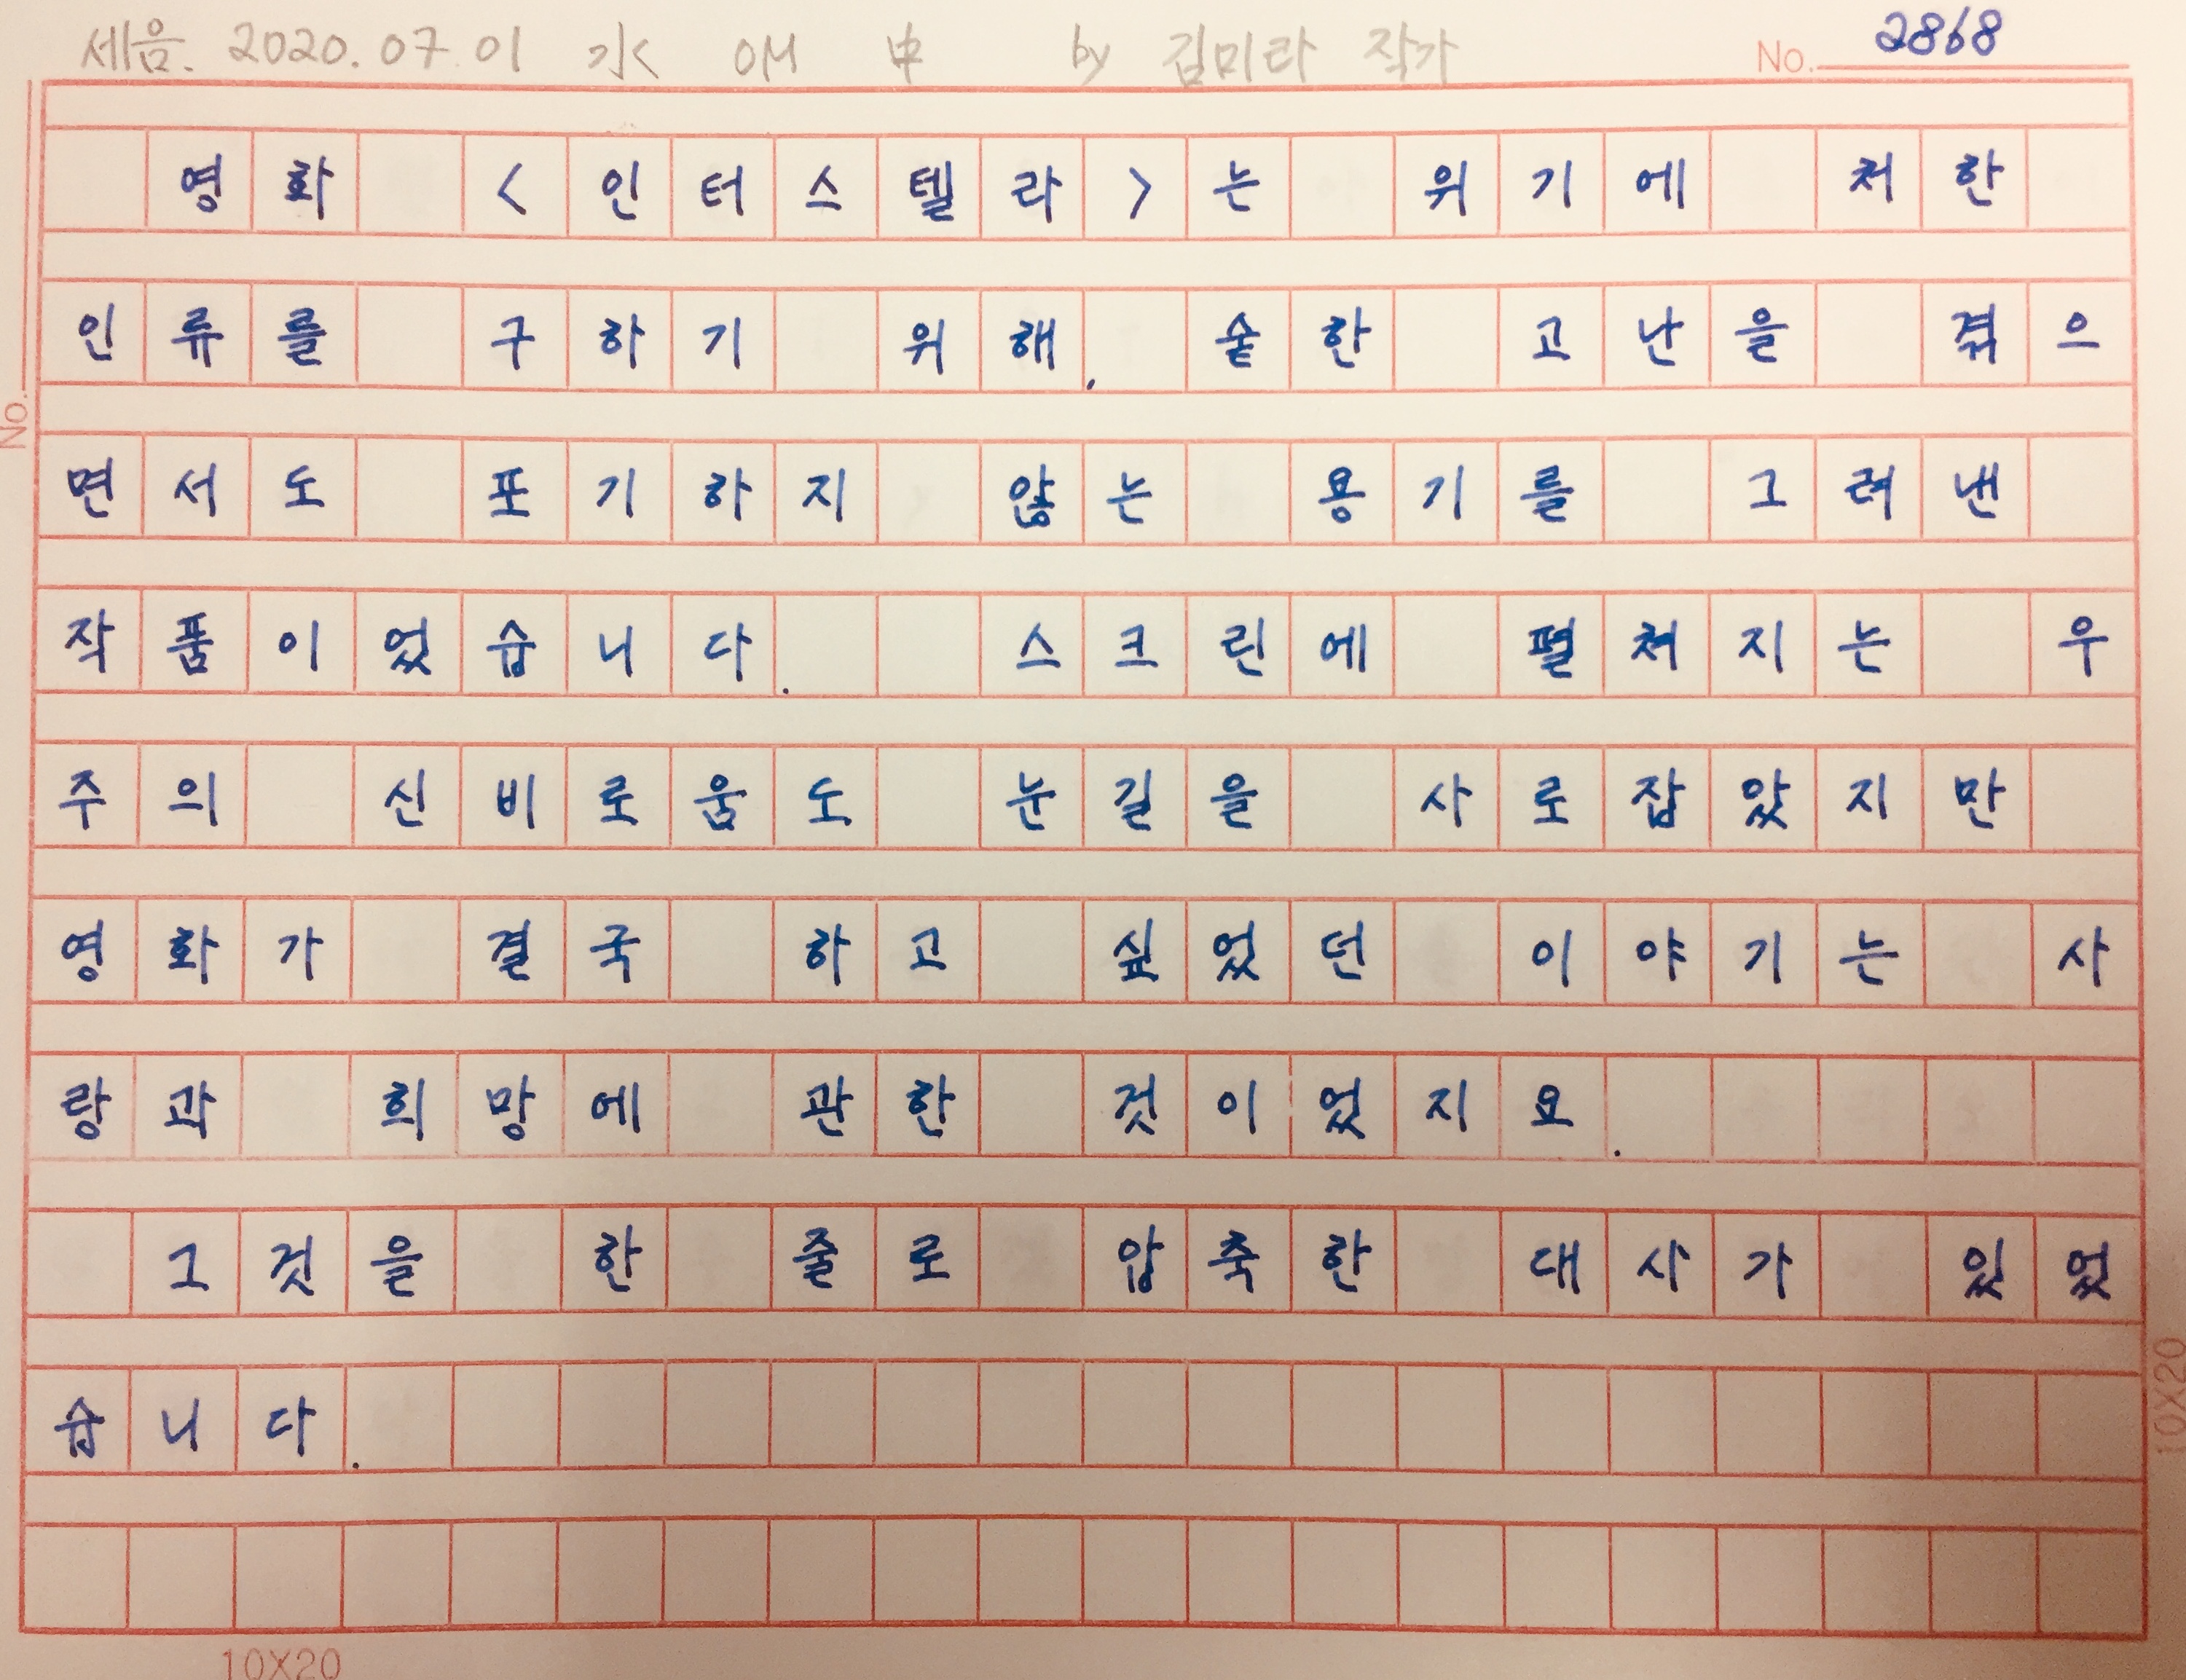 세음. 2020.07.01 水 OM 中 by 김미라 작가
No. 2868
영화 <인터스텔라>는 위기에 처한
인류를 구하기 위해, 숱한 고난을 겪으
No.
면서도 포기하지 않는 용기를 그려낸
작품이었습니다. 스크린에 펼쳐지는 우
주의 신비로움도 눈길을 사로잡았지만
영화가 결국 하고 싶었던 이야기는 사
랑과 희망에 관한 것이었지요.
그것을 한 줄로 압축한 대사가 있었
습니다.
10X20
10X20